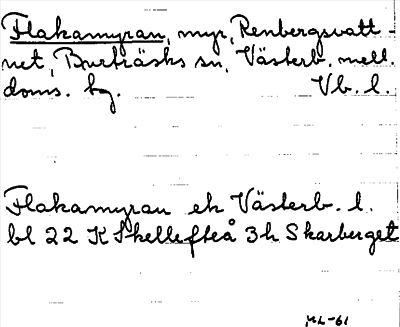 Flakamyran, myr, Renbergsvatt-
net, Burträsks sn, Västerb. mell.
doms. hg. Vb. l.
Flakamyran ek Västerb. l.
bl 22 K Skellefteå 3h Skarberget
ML-61